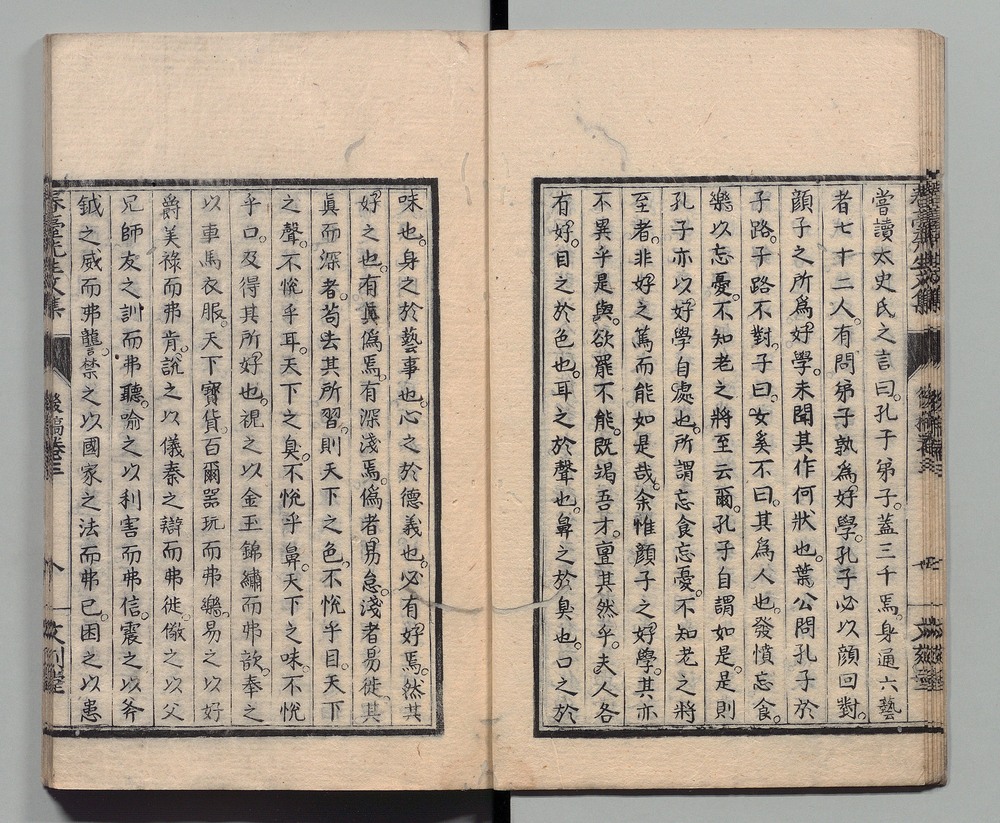 嘗讀太史氏之言曰。孔子弟子。蓋三千焉。身通六藝
者七十二人。有問弟子孰為好學。孔子必以顏回對。
顏子之所爲好學。未聞其作何狀也。葉公問孔子於
子路。子路不對。子曰。女奚不曰。其爲人也。發憤忘食。
樂以忘憂。不知老之將至云爾。孔子自謂如是。是則
孔子亦以好學自處也。所謂忘食忘憂。不知老之將
至者。非好之篤而能如是哉。余惟顏子之好學。其亦
不異乎是與。欲罷不能。既竭吾才。亶其然乎。夫人各
有好。目之於色也。耳之於聲也。鼻之於臭也。口之於
味也。身之於藝事也。心之於德義也。必有好焉。然其
好之也。有眞僞焉。有深淺焉。僞者易怠。淺者易徙。其
眞而深者。苟去其所習。則天下之色。不悅乎目。天下
之聲。不悅乎耳。天下之臭。不悅乎鼻。天下之味。不悅
乎口。及得其所好也。視之以金玉錦繡而弗歆。奉之
以車馬衣服。天下寶貨。百爾器玩而弗樂。易之以好
爵美祿而弗肯。說之以儀秦之辯而弗徙。儆之以父
兄師友之訓而弗聽。喻之以利害而弗信。震之以斧
鉞之威而弗讋。禁之以國家之法而弗已。困之以患
春臺先生文集
後稿卷三
八